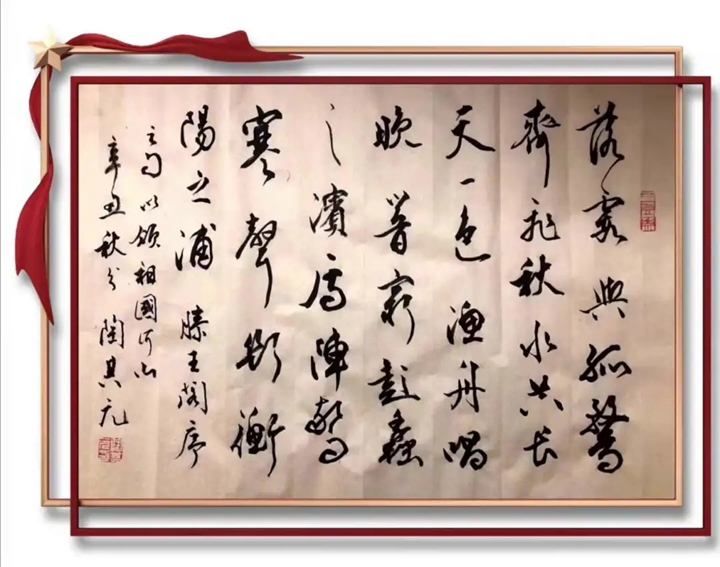 落霞與孤鶩
齊飛秋水共长
天一色渔舟唱
晚響窮彭蠡
之濱雁陣驚
寒聲斷衡
陽之浦 滕王阁序
之句以颂祖國河山
辛丑秋分 陶其元